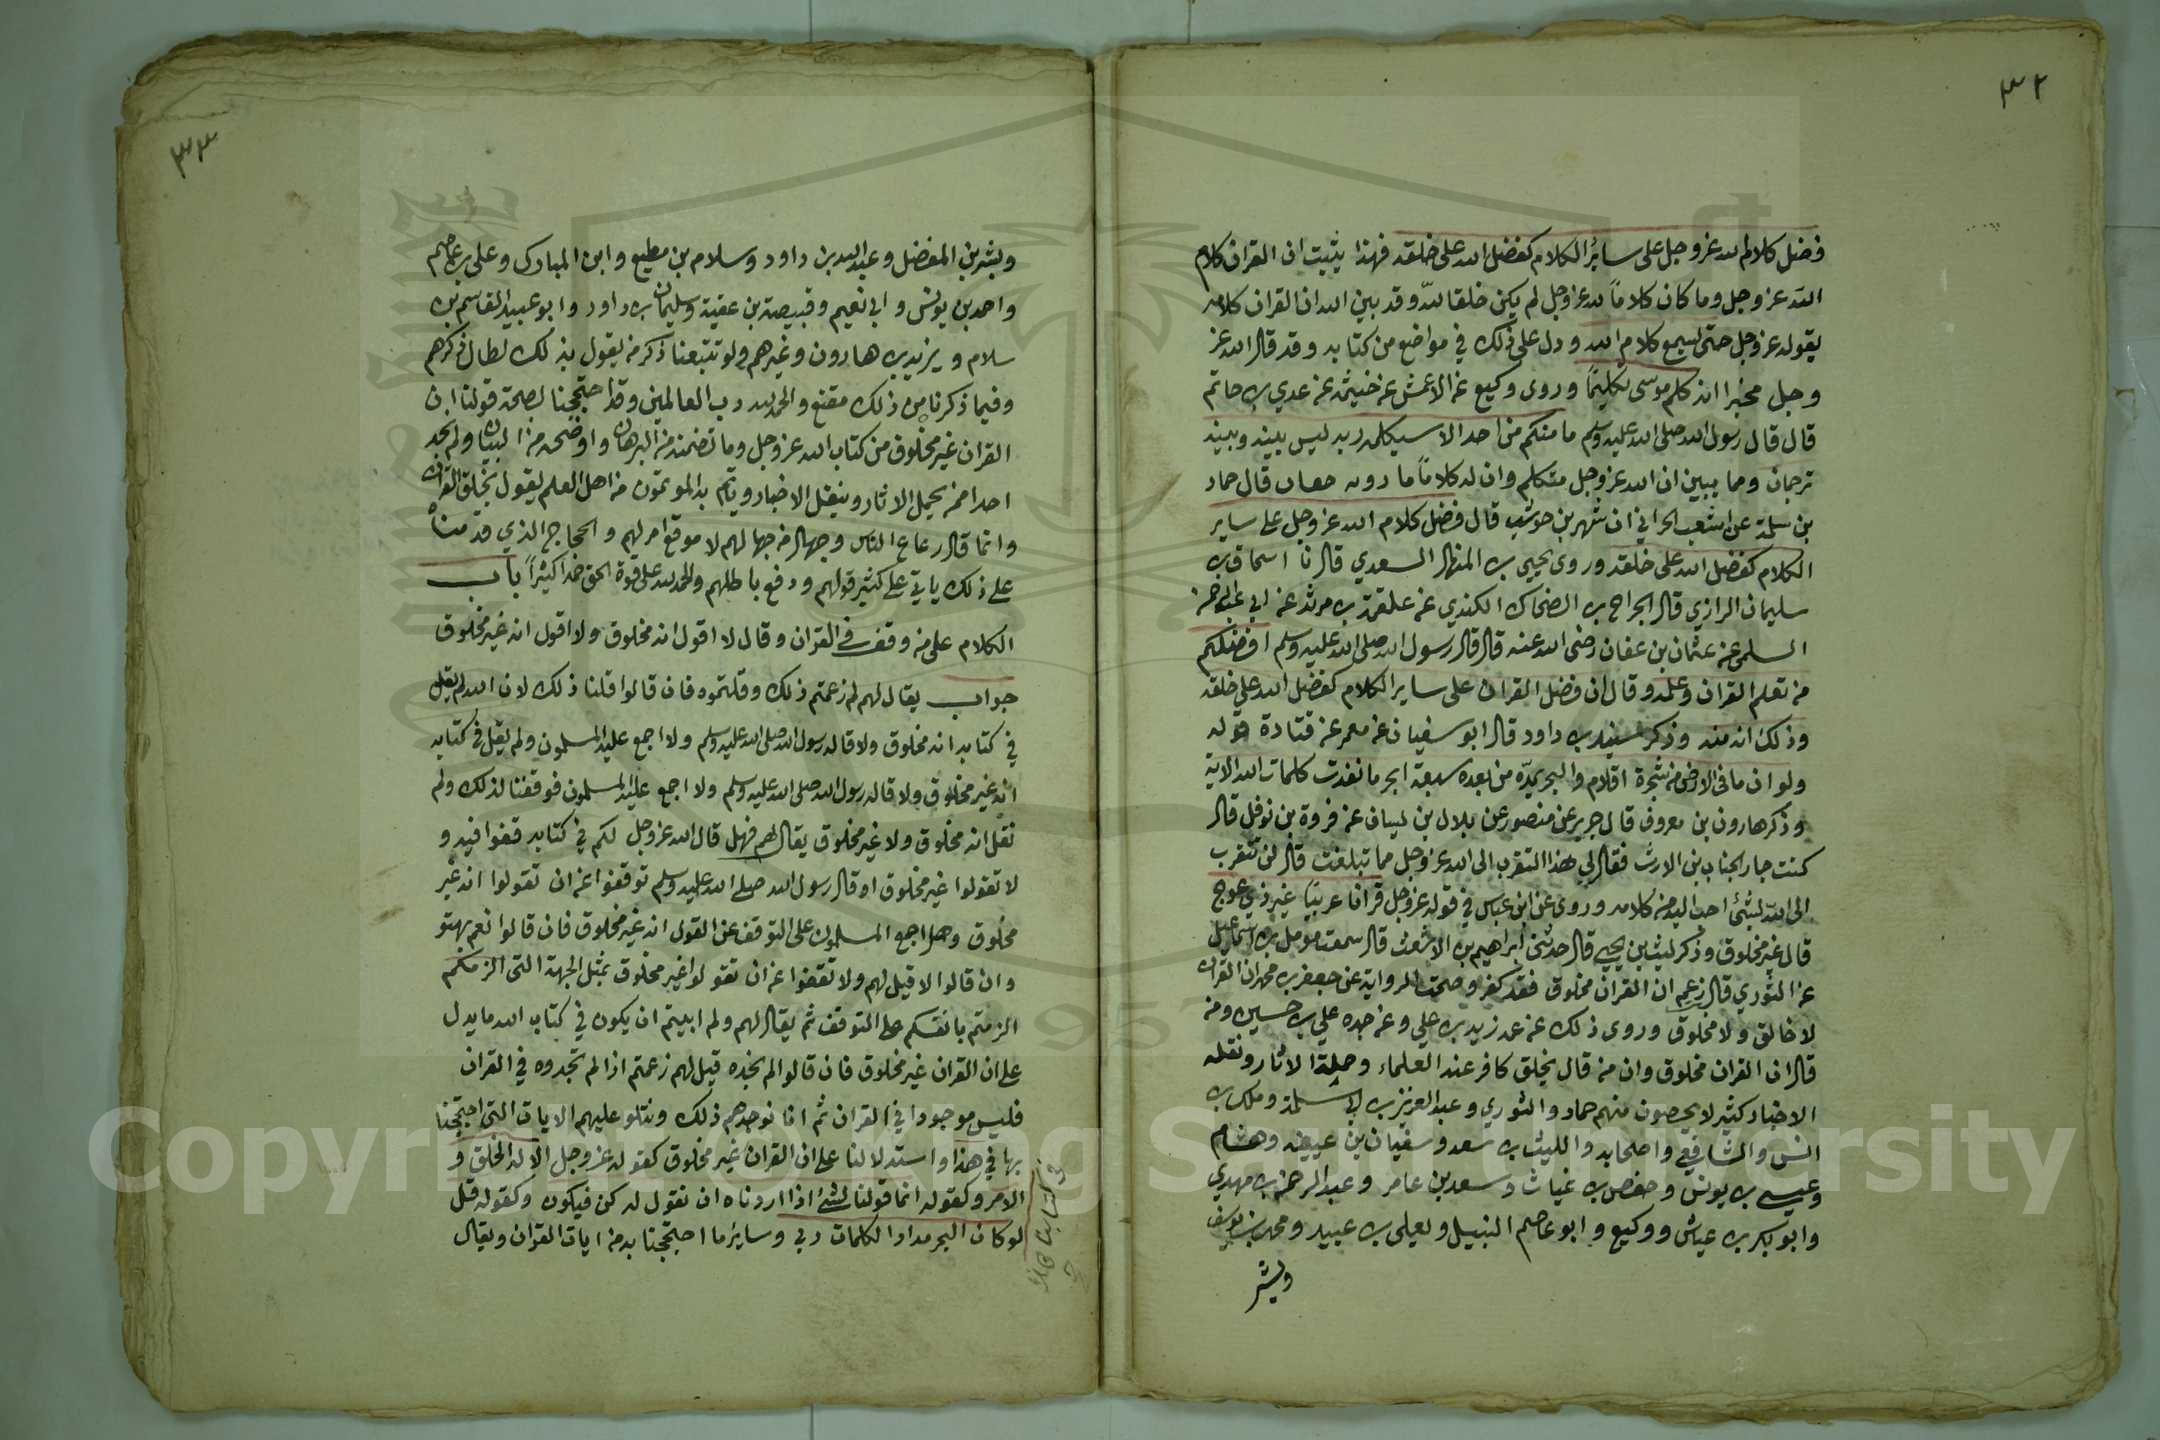 ٣٢
فضل كلام الله عز وجل على سائر الكلام كفضل الله على خلقه فهذا يثبت ان القران كلام
الله عز وجل وما كان كلاماً لله عز وجل لم يكن خلقا لله وقد بين الله ان القران كلامه
بقوله عز وجل حتى يسمع كلام الله ودل على ذلك في مواضع من كتابه وقد قال الله عز
وجل مخبرا انه كلم موسى تكليمًا وروى وكيع عن الاعمش عن خثيمه عن عدي بن حاتم
قال قال رسول الله صلى الله عليه وسلم ما منكم من احد الا سيكلمه ربه ليس بينه وبينه
ترجمان ومما يبين ان الله عز وجل متكلم وان له كلاماً ما قال حماد
بن سلمة عن اشعب الحراني ان شهر بن حوشب قال فضل كلام الله عز وجل على ساير
الكلام كفضل الله على خلقه وروى يحيى بن المنهال السعدي قال نا اسحاق بن
سليمان الرازي قال الجراح بن الضحاك الكندي عن علقمة بن مرثد عن ابي عبد الرحمن
السلمى عن عثمان بن عفان رضى الله عنه قال قال رسول الله صلى الله عليه وسلم افضلكم
من تعلم القران وعلمه وقال ان فضل القران على ساير الكلام كفضل الله على خلقه
وذلك انه منه وذكر سنيد بن داود قال ابو سفيان عن معمر عن قتادة قوله
ولو ان ما في الارض من شجرة اقلام والبحر يمدّه من بعده سبعة ابحر ما نفدت كلمات الله الاية
وذكر هارون بن معروف قال جرير عن منصور عن بلال بن يساف عن فروة بن نوفل قال
كنت جار لجناب بن الارت فقال لي هذا التقرب الى الله عز وجل مما تبلغت قال لن تتقرب
الى الله بشئ احب اليه من كلامه وروى عن ابن عباس في قوله عز وجل قرآنا عربيًا غير ذي عوج
قال غير مخلوق وذكر ليث بن يحيى قال حدثنى ابراهيم بن الاشعث قال سمعت مومل بن اسماعيل
عن الثوري قال من زعم ان القران مخلوق فقد كفر وصحت الرواية عن جعفر بن محمد ان القران
لا خالق ولا مخلوق وروى ذلك عن عمه زيد بن علي وعن جده علي بن حسين ومن
قال ان القران مخلوق وان من قال بخلق كافر عند العلماء وحملة الاثار ونقله
الاخبار كثير لا يحصون منهم حماد والثوري وعبد العزيز بن ابي سلمة وملك بن
انس والشافعي واصحابه والليث بن سعد وسفيان بن عيينه وهشام
وعيسى بن يونس وحفص بن غياث وسعد بن عامر وعبد الرحمن بن مهدي
وابو بكر بن عياش ووكيع وابو عاصم النبيل ويعلى بن عبيد ومحمد بن يوسف
وبشر
٣٣
وبشر بن المفضل وعبد الله بن داود وسلام بن مطيع وابن المبارك وعلى بن عاصم
واحمد بن يونس وابي نعيم وقبيصة بن عقبة وسليمان بن داود وابو عبيد القاسم بن
سلام ويزيد بن هارون وغيرهم ولو تتبعنا ذكر من يقول بذلك لطال ذكرهم
وفيما ذكرنا من ذلك مقنع والحمد لله رب العالمين وقد احتججنا لصحة قولنا ان
القران غير مخلوق من كتاب الله عز وجل وما تضمنه من البرهان واوضحه من البيان ولم نجد
احدا ممن يحمل الاثار وينقل الاخبار وياتم به المؤتمون من اهل العلم يقول بخلق القران
وانما قال رعاع الناس وجهال من جهالهم لا موقع امر لهم والحجاج الذي قدمناه
على ذلك ياتي على كثير قولهم ودفع باطلهم والحمد لله على قوة الحق حمدا كثيراً باب
الكلام على من وقف في القران وقال لا اقول انه مخلوق ولا اقول انه غير مخلوق
جواب يقال لهم لم زعمتم ذلك وقلتموه فان قالوا قلنا ذلك لان الله لم يقل
في كتابه انه مخلوق ولا قاله رسول الله صلى الله عليه وسلم ولا اجمع عليه المسلمون ولم يقل في كتابه
انه غير مخلوق ولا قاله رسول الله صلى الله عليه وسلم ولا اجمع عليه المسلمون فوقفنا لذلك ولم
نقل انه مخلوق ولا غير مخلوق يقال لهم فهل قال الله عز وجل لكم في كتابه قفوا فيه و
لا تقولوا غير مخلوق او قال رسول الله صلى الله عليه وسلم توقفوا عن ان تقولوا انه غير
مخلوق وهل اجمع المسلمون على التوقف عن القول انه غير مخلوق فان قالوا نعم بهتو
وان قالوا لا قيل لهم ولا تقفوا عن ان تقولوا غير مخلوق بمثل الجهة التى الزمتكم
الزمتم بانفسكم على التوقف ثم يقال لهم ولم ابيتم ان يكون في كتاب الله ما يدل
على ان القران غير مخلوق فان قالوا لم نجده قيل لهم زعمتم اذا لم تجدوه في القران
فليس موجودا في القران ثم انا نوجدهم ذلك ونتلو عليهم الايات التى احتججنا
بها في هذا واستدلالنا على ان القران غير مخلوق كقوله عز وجل الا له الخلق و
الامر وكقوله انما قولنا لشئ اذا اردناه ان نقول له كن فيكون وكقوله قل
لو كان البحر مدادا لكلمات ربي وسائر ما احتججنا به من ايات القران ويقال
كتابنا هذا